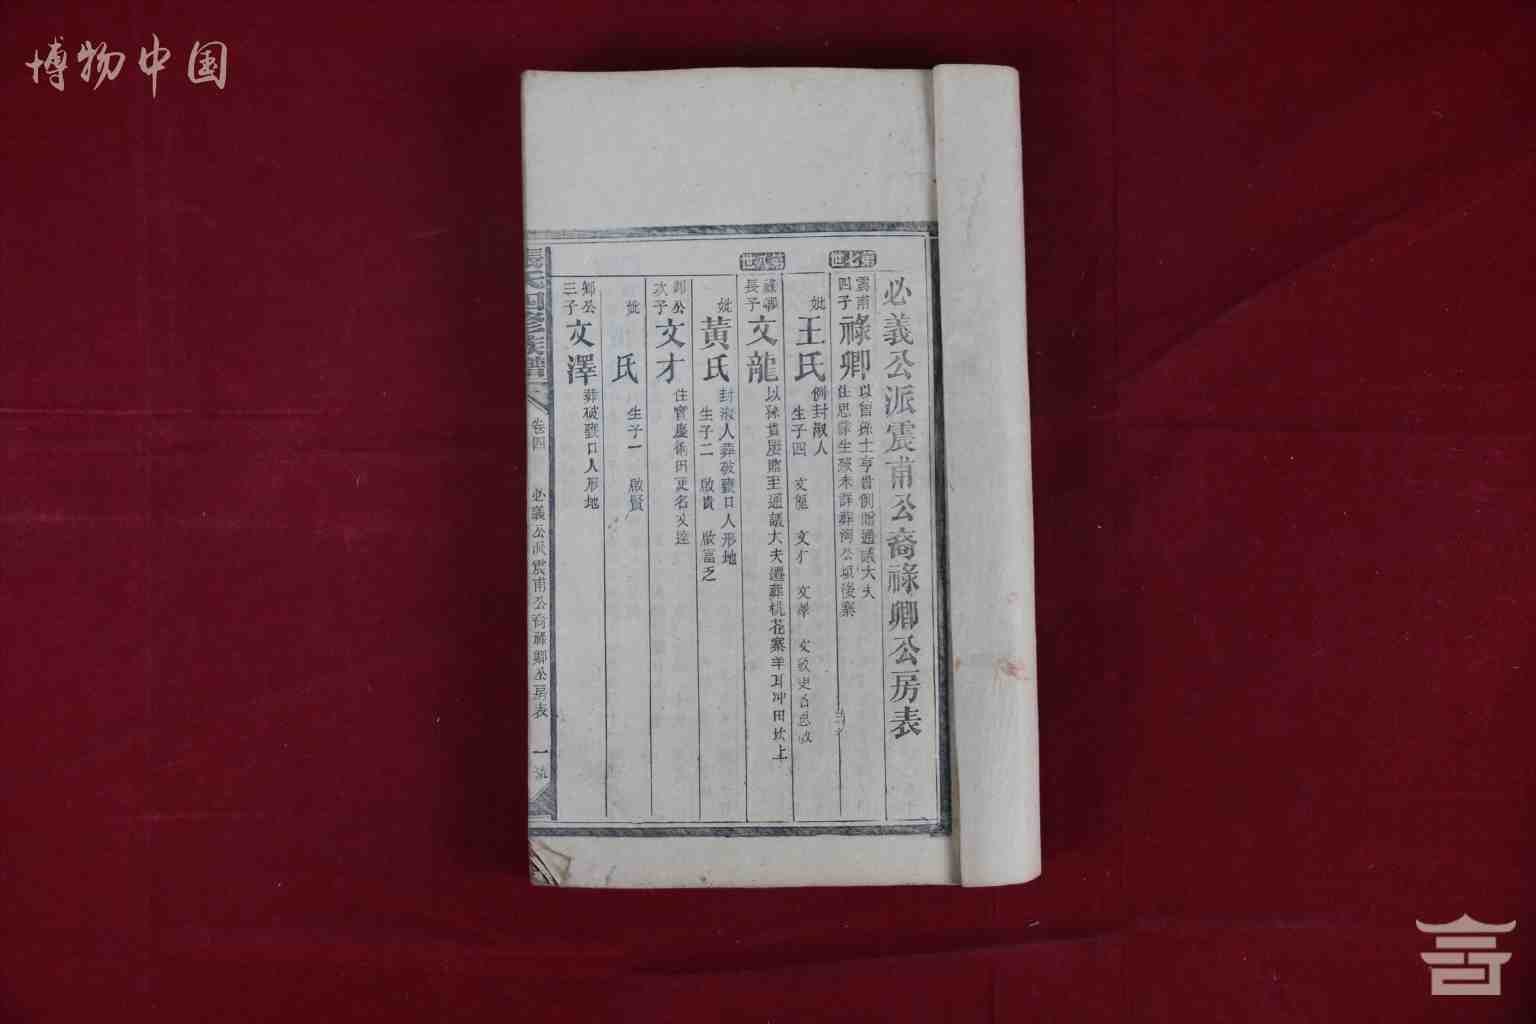 博物中国
必義公派震甫公裔祿卿公房表
第七世
震甫四子
祿卿
以曾孫士亨貴例贈通議大夫
住思 生歿未詳葬灣公壩後寨
妣王氏
例封淑人
生子四 文龍 文才 文澤 文敏更名思敬
第八世
祿卿長子
文龍
以孫貴屢贈至通議大夫遷葬桃花寨羊耳冲田坎上
妣黃氏
封淑人葬破甕口人形地
生子二 啟貴 啟富乏
卿公次子
文才
住寶慶衛田更名文達
妣 氏
生子一 啟賢
卿公三子
文澤
葬破甕口人形地
張氏四修族譜
卷四
必義公派震甫公裔祿卿公房表
一